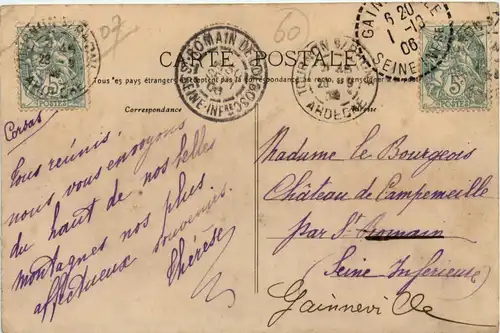 07
60
CARTE POSTALE
Tous les pays étrangers acceptent pas la correspondance au recto, se renseigner
Correspondance
Adresse
TOURNON S/ RHONE
ARDECHE
ST ROMAIN DE COLBOSC
SEINE-INFRE
GAINNEVILLE
6 20
1 -10
06
SEINE INFRE
5c
POSTES
Tous réunis,
nous vous envoyons
du haut de nos belles
montagnes nos plus
affectueux souvenirs.
Thérèse
Madame le Bourgeois
Château de Campemeille
par St Romain
Seine Inférieure
Gainneville